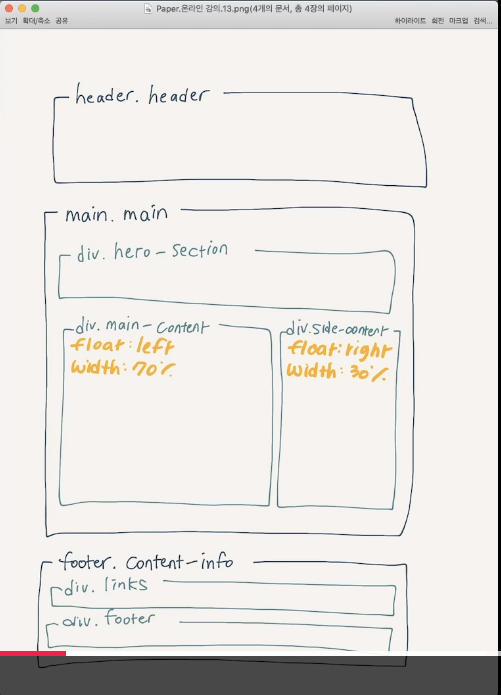 Paper.온라인 강의.13.png(4개의 문서, 총 4장의 페이지)
보기 확대/축소 공유 하이라이트 회전 마크업 검색...
header. header
main. main
div. hero-section
div. main-content
float:left
width:70%
div.side-content
float:right
width:30%
footer. content-info
div. links
div. footer